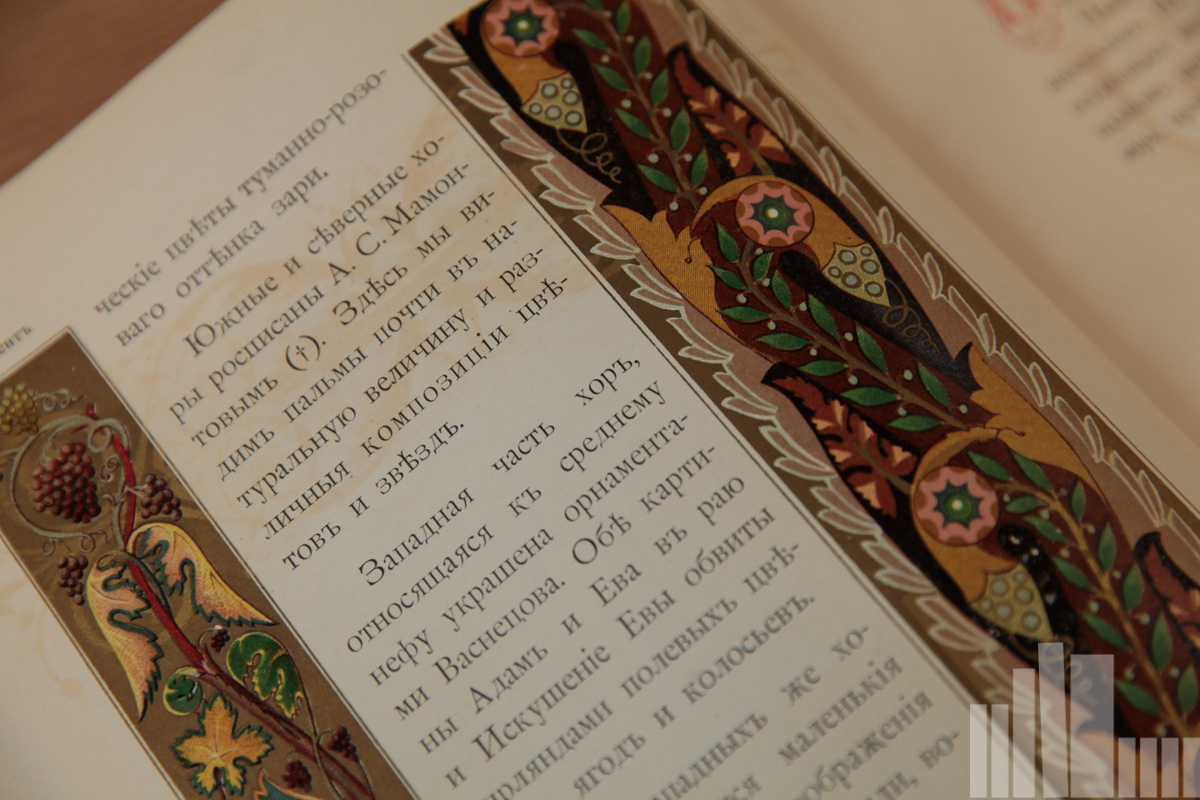 ческіе цвѣты туманно-розо-
ваго оттѣнка зари.
Южные и сѣверные хо-
ры росписаны А. С. Мамон-
товымъ (†). Здѣсь мы ви-
димъ пальмы почти въ на-
туральную величину и раз-
личныя композиціи цвѣ-
товъ и звѣздъ.
Западная часть хоръ,
относящаяся къ среднему
нефу украшена орнамента-
ми Васнецова. Обѣ карти-
ны Адамъ и Ева въ раю
и Искушеніе Евы обвиты
ирляндами полевыхъ цвѣ-
ягодъ и колосьевъ.
западныхъ же хо-
маленькія
ображенія
во-